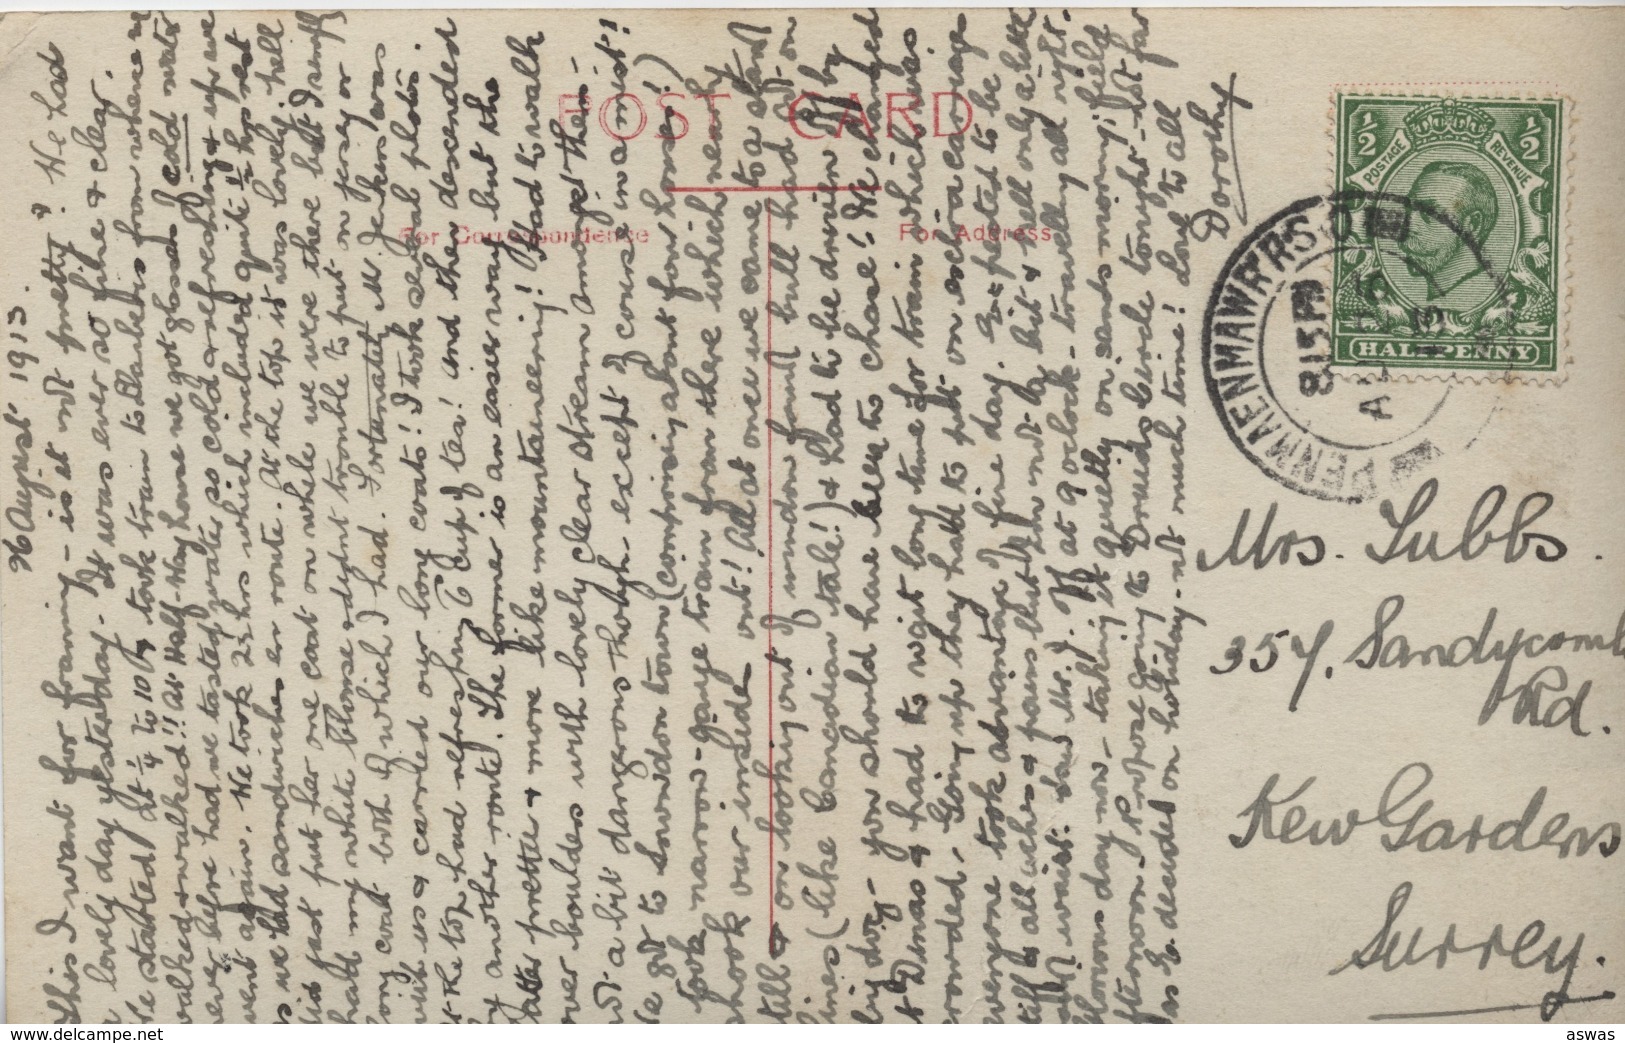 26 August 1913
This I want for framing - is it not pretty? We had
a lovely day yesterday. It was ever so fine & clear.
We started at ¼ to 10 & took train to Llanberis from where we
walked & walked!! At Half-Way house we got glasses of cold water
never before had we tasted water so cold & refreshing & up we
went again. We took 2½ hrs which included quite ½ hrs rest
as we had sandwiches en route. At the top it was lovely. Nell
did just put her one coat on while we were there but I simply
had my white blouse & didnt trouble to put on jersey or
long coat both of which I had. Fortunately M. Jenkins was
with us & carried our long coats! I took several photos.
At the top had refreshing 6d cup of tea! and then descended
by another route. The former is an easier way but the
latter prettier & more like mountaineering! Had to walk
over boulders with lovely clear stream amongst them -
not a bit dangerous though - except of course in a mist!
We got to Snowdon town (comprising about four houses!)
took narrow-gauge train from there which nearly
shook our insides out! All at once we came to a stand
still & on looking out of window found bull had got on
lines (like Canadian tale!) & had to be driven off by
by dog - you should have been to chase! We changed
at Dinas & had to wait long time for train which was
crowded. Going up they had to put on extra carriage
everyone took advantage of fine day. Expected to be
stiff & all aches & pains but I'm not a bit & Nell only a little
                            at 9 oclock - travelling all right.
Glorious day now - taking it quietly on sands morning, field
afternoon & purpose going to Druids Circle tonight - not far
as E. decided on holiday - not much time! Love to all
Dorothy
POST CARD
For Correspondence
For Address
½
½
POSTAGE
REVENUE
HALFPENNY
PENMAENMAWR R.S.O
8 15 PM
Mrs. Tubbs.
357, Sandycomb
Rd.
Kew Gardens
Surrey.
aswas